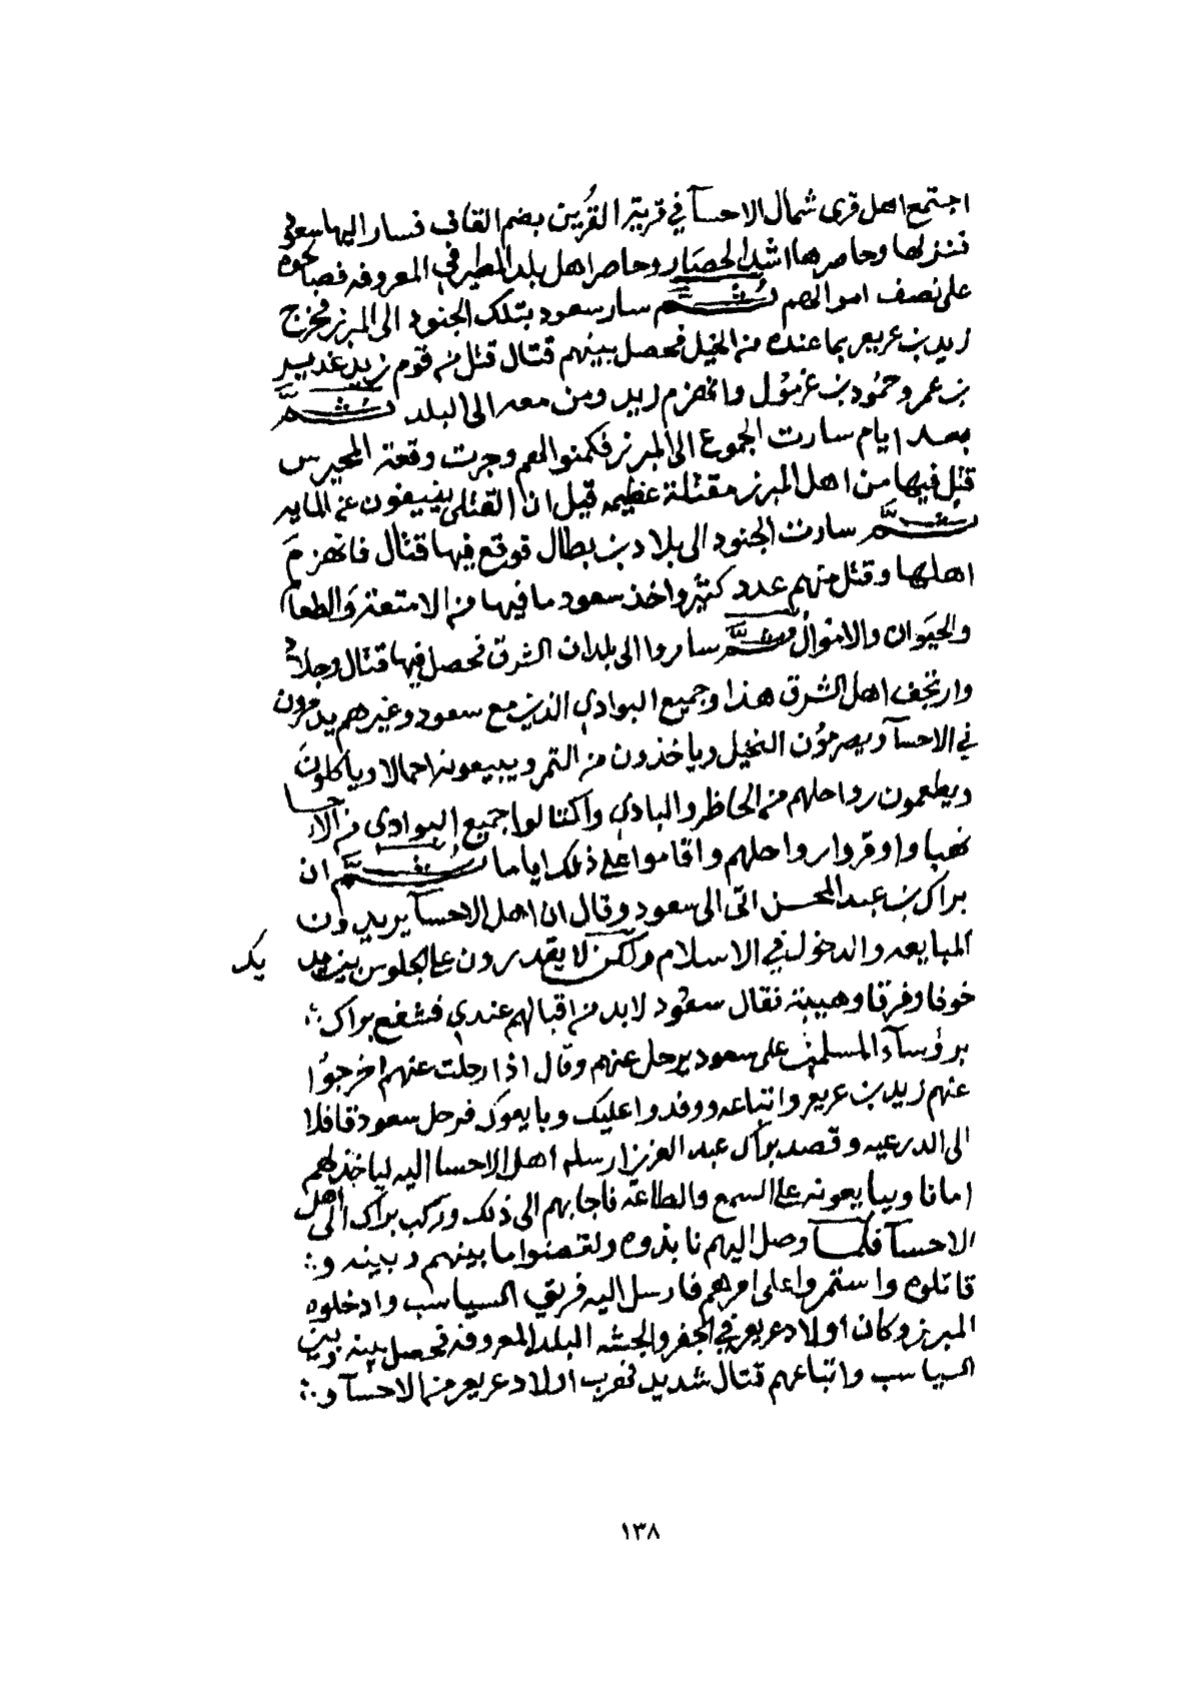 اجتمع اهل قرى شمال الاحسآ في قرية القُرَين بضم القاف فسار اليها سعود
فنزلها وحاصرها اشد الحصار وحاصر اهل بلد المطيرفي المعروفه فصالحوه
على نصف اموالهم ثم سار سعود بتلك الجنود الى المبرز فخرج
زيد بن عريعر بما عنده من الخيل فحصل بينهم قتال قتل من قوم زيد غدير
بن عمر وحمُود بن غرمُول وانهزم زيد ومن معه الى البلد ثم
بعد ايام سارت الجموع الى المبرز فكمنوا لهم وجرت وقعة المحيرس
قتل فيها من اهل المبرز مقتلة عظيمه قيل ان القتلى ينيفون عن المايه
ثم سارت الجنود الى بلاد بن بطال فوقع فيها قتال فانهزمَ
اهلها وقتل منهم عدد كثير واخذ سعود ما فيها من الامتعة والطعام
والحيَوان والاموال ثم ساروا الى بلدان الشرق فحصل فيها قتال وجلاد
وارتجف اهل الشرق هذا وجميع البوادي الذين مع سعود وغيرهم يدمرون
في الاحسآ ويصرمُون النخيل وياخذون من التمر ويبيعونه احمالا وياكلونَ
ويطعمون رواحلهم من الحاظر والبادي واكتالوا جميع البوادي من الاحسا
نهبا واوقروا رواحلهم واقاموا على ذلك اياما ثم ان
براك بن عبد المحسن اتى الى سعود وقال ان اهل الاحسآ يريدون
المبايعه والدخول في الاسلام ولكن لا يقدرون على الجلوس بين يديك
خوفا وفرقا وهيبة فقال سعُود لابد من اقبالهم عندي فشفع براك
برؤسآء المسلمين على سعود يرحل عنهم وقال اذا رحلت عنهم اخرجوُا
عنهم زيد بن عريعر واتباعه ووفدوا عليك وبايعوك فرحل سعود قافلا
الى الدرعيه وقصد براك عبد العزيز ارسله اهل الاحسا اليه لياخذ لهم
امانا ويبايعونه على السمع والطاعة فاجابهم الى ذلك وركب براك الى اهل
الاحسآ فلما وصل اليهم نابذوه ونقضوا ما بينهم وبينه و
قاتلوه واستمروا على امرهم فارسل اليه فريق السياسب وادخلوه
المبرز وكان اولاد عريعر في الجفر والجشه البلد المعروفه فحصل بينه وبين
السياسب واتباعهم قتال شديد فهرب اولاد عريعر من الاحسآ و
١٣٨